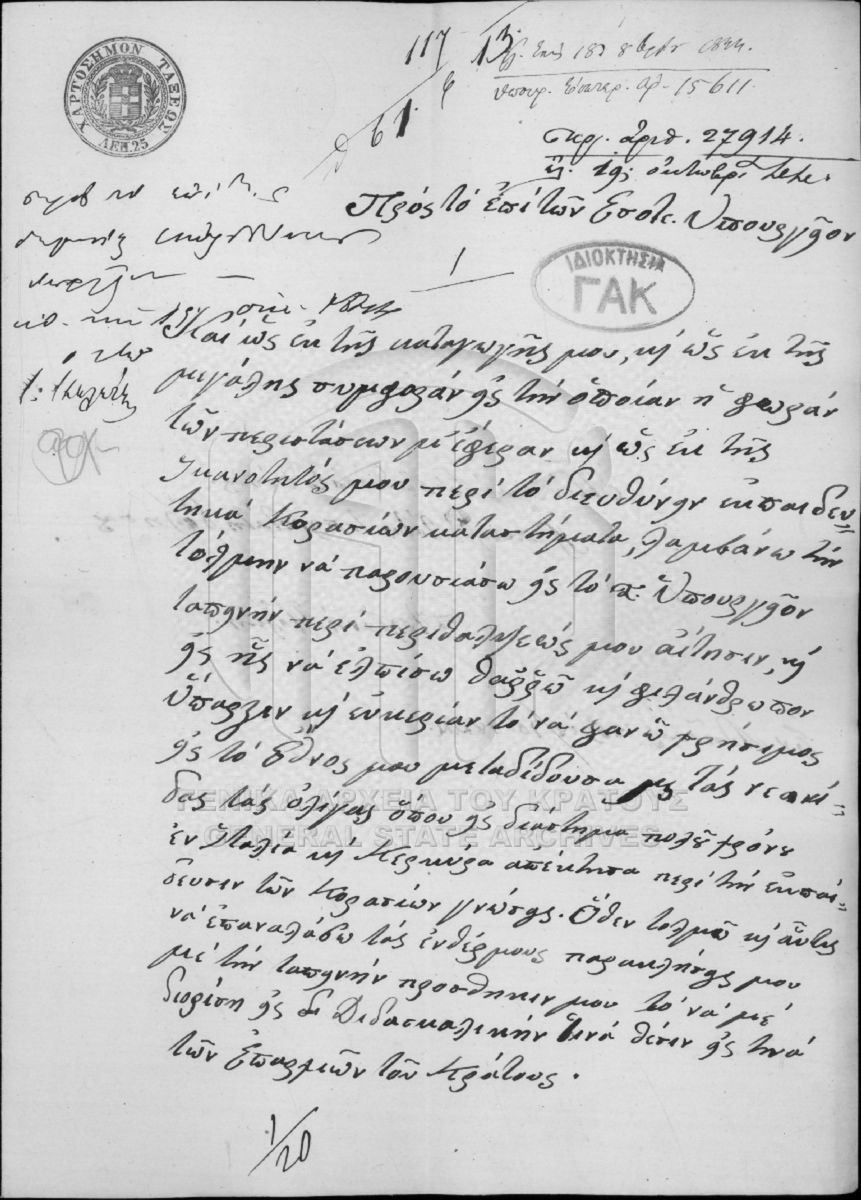 ΧΑΡΤΟΣΗΜΟΝ ΤΑΞΕΩΣ
ΛΕΠ.25
117
61
Ὑπουρ. Ἐσωτερ. ἀρ. 15611
ἀριθ. 27914.
19 ὀκτωβρί
Πρὸς τὸ ἐπὶ τῶν Εσοτε. Ὑπουργεῖον
ΙΔΙΟΚΤΗΣΙΑ
ΓΑΚ
Καὶ ὡς ἐκ τῆς καταγωγῆς μου, κὶ ὡς ἐκ τῆς
μεγάλης συμφορὰν εἰς τὴν ὁποίαν ἡ φωρὰν
τῶν περιστάσεων μ' ἔφεραν κὶ ὡς ἐκ τῆς
ἱκανοτητός μου περὶ τὸ διευθύνην ἐκπαιδευ=
τικά Κορασιών καταστήματα, λαμβάνω τὴν
τόλμην νὰ παρουσιάσω εἰς τὸ Ὑπουργεῖον
ταπεινὴν περὶ περιθάλψεώς μου αἴτησειν, κὶ
εἰς ἧς νὰ ἐλπίσω θαῤῥῶ κὶ φιλάνθρωπον
ὕπαρξειν κὶ εὐκερίαν τὸ νὰ φανῶ χρήσιμος
εἰς τὸ ἔθνος μου μεταδίδουσα εἰς τὰς νεανί=
δας τὰς ὀλίγας ὅπου εἰς διάστημα πολοῦ χρόνου
ἐν Ἰταλία κὶ Κερκυρα ἀπέκτησα περὶ τὴν ἐκπαί=
δευσιν τῶν Κορασιών γνώσης. Ὅθεν τολμῶ κὶ αὖτις
νὰ ἐπαναλάβω τὰς ἐνθέρμους παρακλήσης μου
μὲ τὴν ταπεινὴν προσθηκειν μου τὸ νὰ μὲ
διορίση εἰς Διδασκαλικὴν τινὰ θέσιν εἰς τινὰ
τῶν Ἐπαρχιῶν τοῦ Κράτους.
ΓΕΝΙΚΑ ΑΡΧΕΙΑ ΤΟΥ ΚΡΑΤΟΥΣ
GENERAL STATE ARCHIVES
1/20